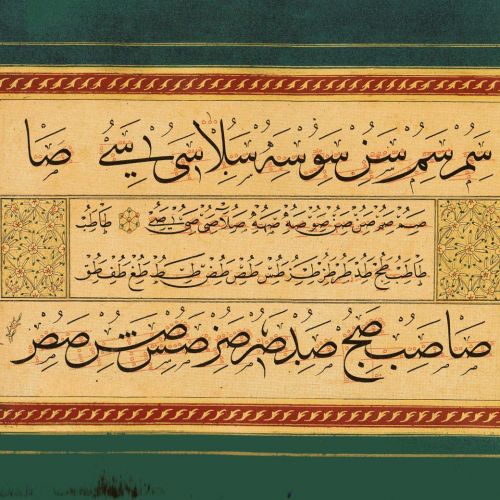 سم سم سن سو سه سلا سى سے صا
صم صم صن صن صو صه صلا صى صے طا طب
طا طب طج طد طر طر طس طص طط طع طف طق
صا صب صج صد صر صر صس صر